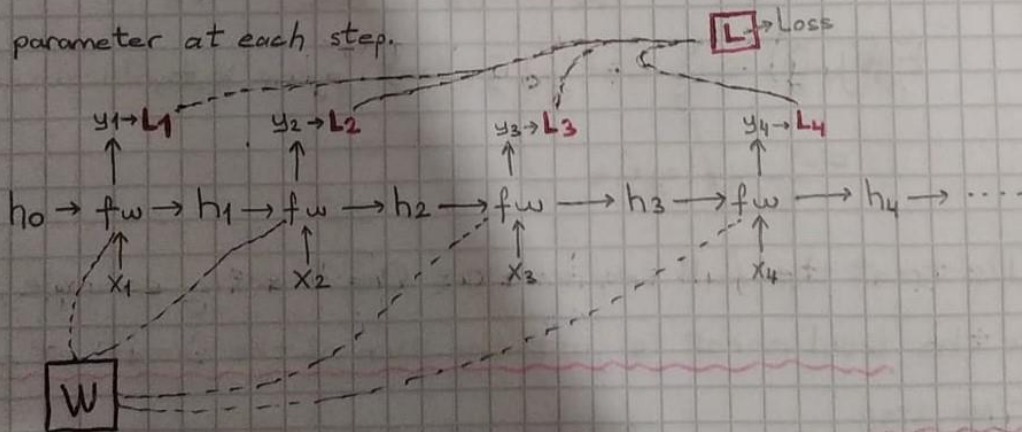 parameter at each step.
L → Loss
y1 → L1 y2 → L2 y3 → L3 y4 → L4
h0 → fw → h1 → fw → h2 → fw → h3 → fw → h4 → ....
x1 x2 x3 x4
W